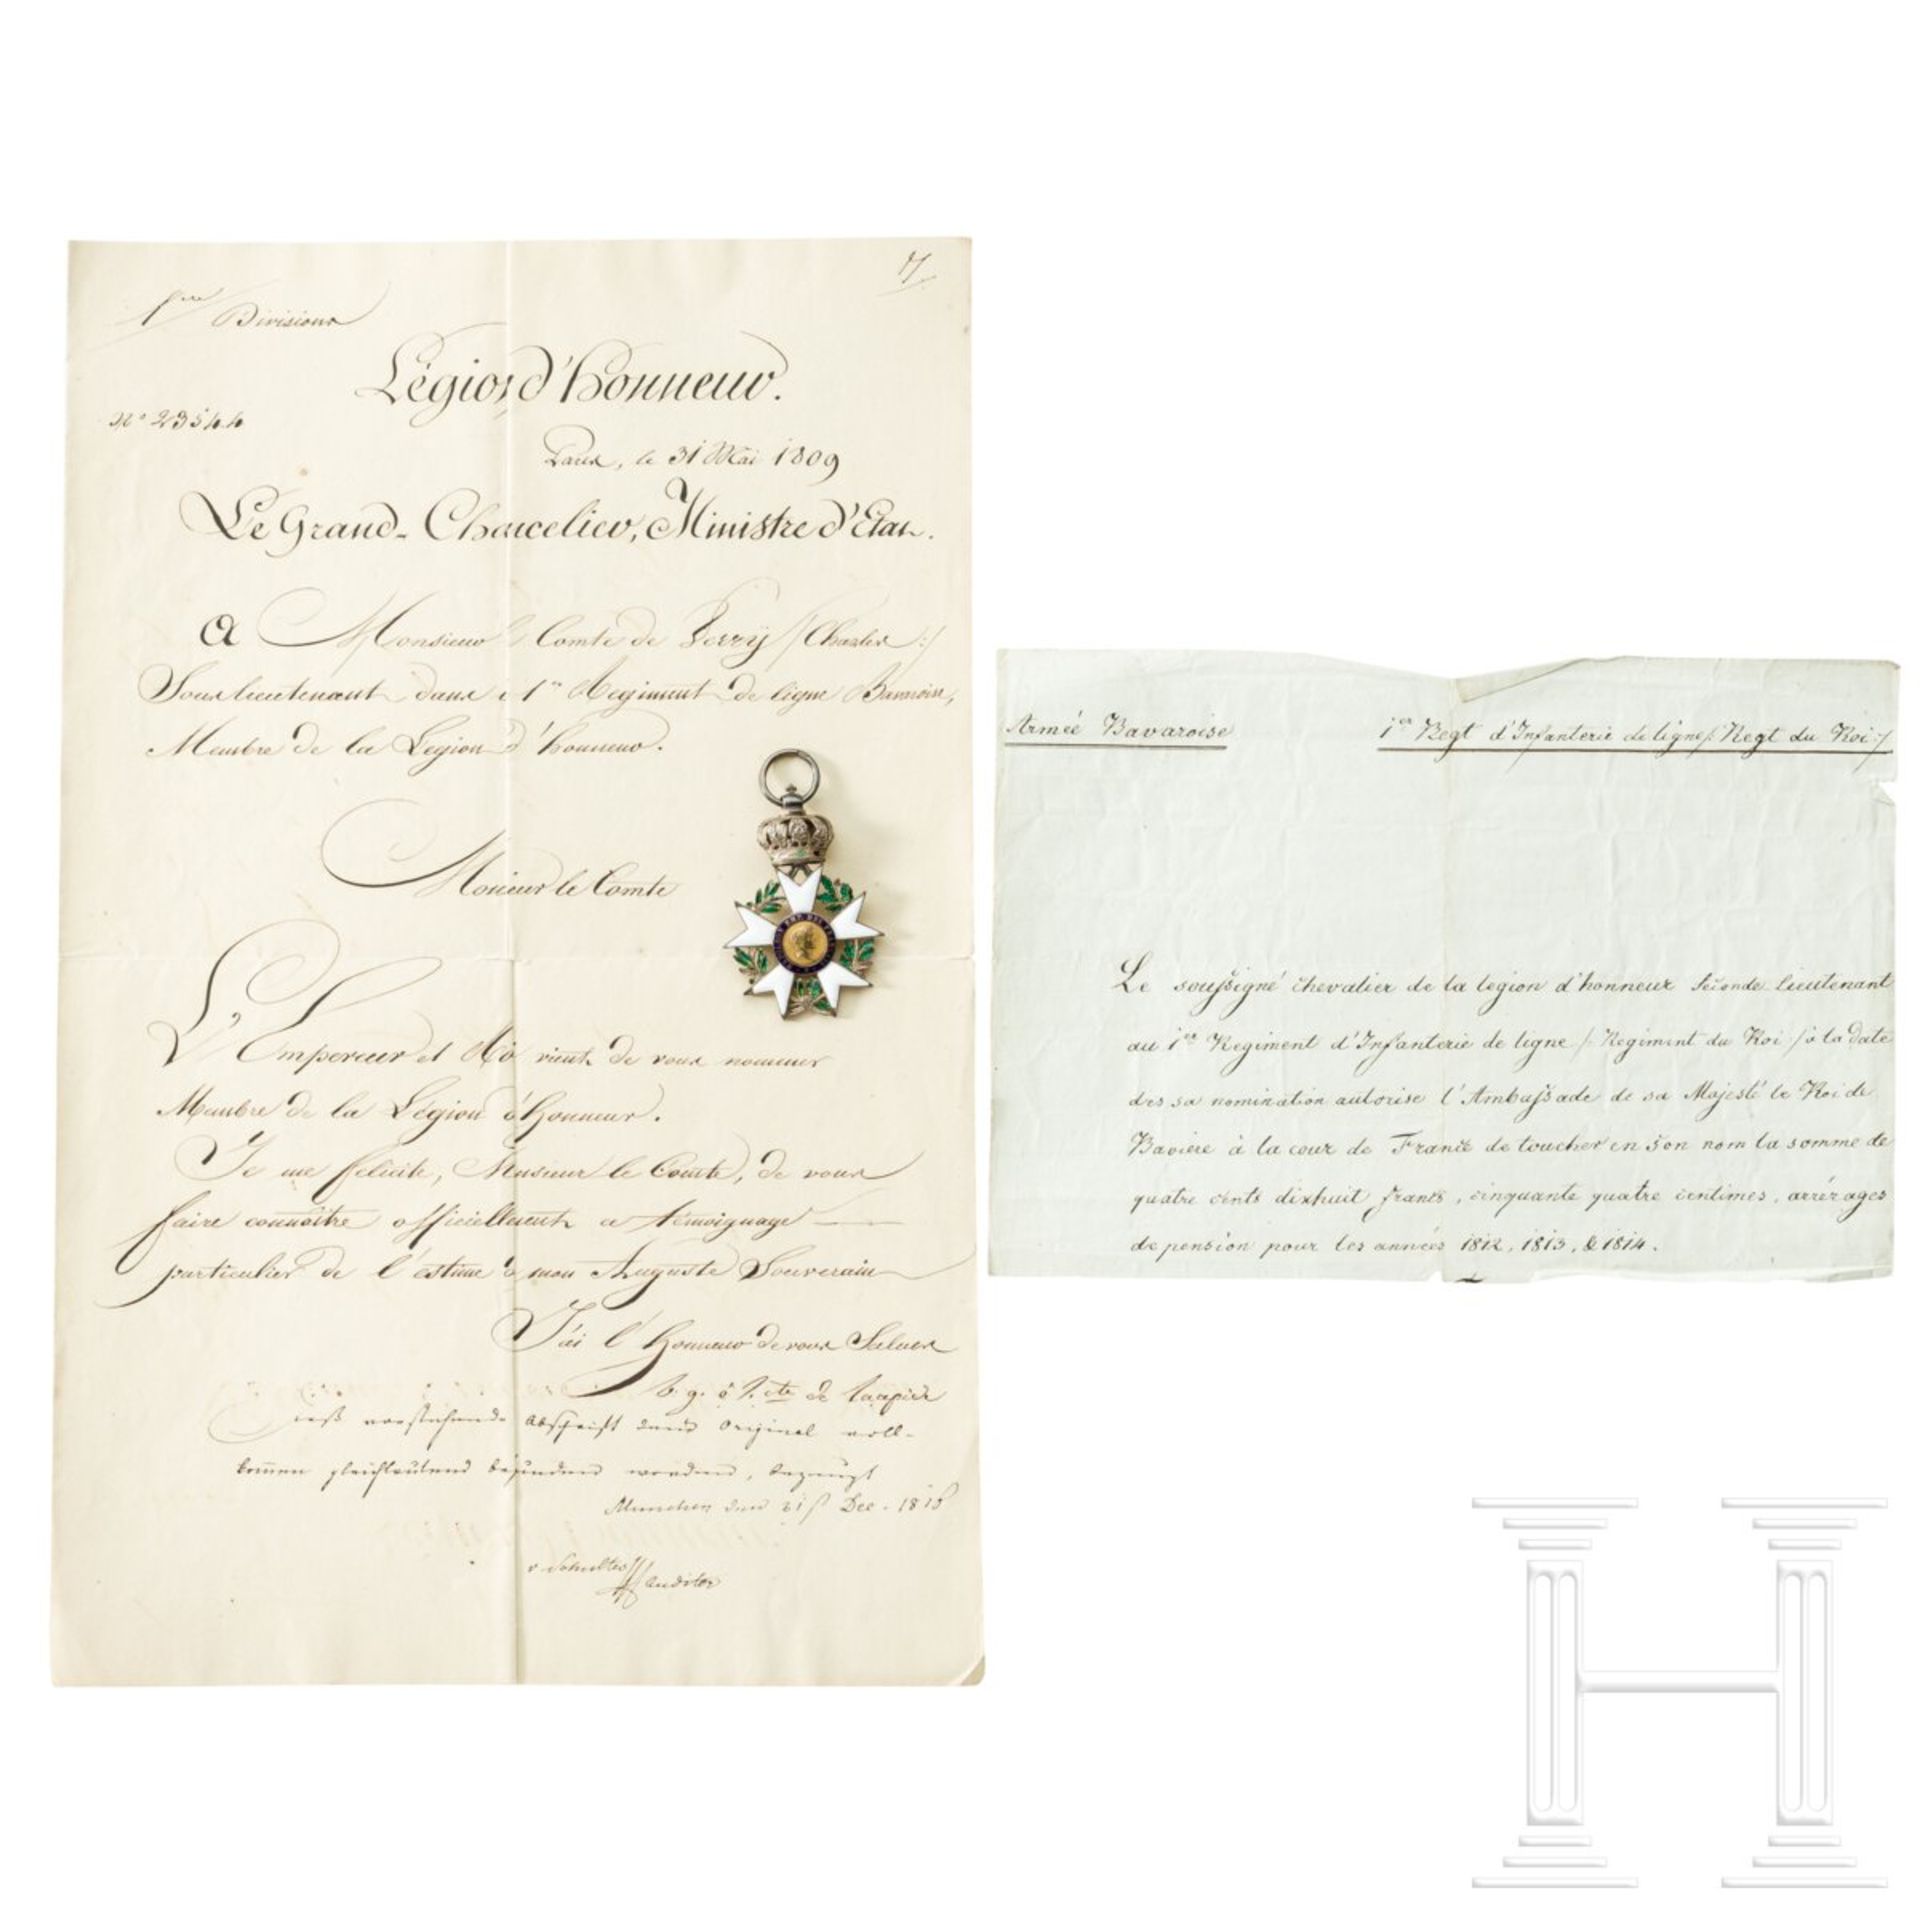 1ere Division
Légion d'honneur.
No 23544
Paris, le 31 Mai 1809
Le Grand-Chancelier, Ministre d'Etat.
A Monsieur le Comte de /Charles:/
Souslieutenant dans le 1er Regiment de ligne Bavarois,
Membre de la Légion d'honneur.
Monsieur le Comte
L'Empereur et Roi vient de vous nommer
Membre de la Légion d'Honneur.
Je me félicite, Monsieur le Comte, de vous
faire connaître officiellement ce témoignage
particulier de l'estime de mon Auguste Souverain
J'ai l'honneur de vous Saluer
b. g. é. L. cte de
vorstehende Abschrift dem Original voll-
kommen gleichlautend befunden worden, bezeugt
München den 31t Dec. 1815
v Schultes Auditor
Armée Bavaroise
1er Regt d'Infanterie de ligne /:Regt du Roi:/
Le soussigné chevalier de la legion d'honneur Seconde-Lieutenant
au 1er Regiment d'Infanterie de ligne /: Regiment du Roi / à la date
des sa nomination autorise l'Ambassade de sa Majesté le Roi de
Baviere à la cour de France de toucher en son nom la somme de
quatre cents dixhuit francs, cinquante quatre centimes, arrérages
de pension pour les années 1812, 1813, & 1814.